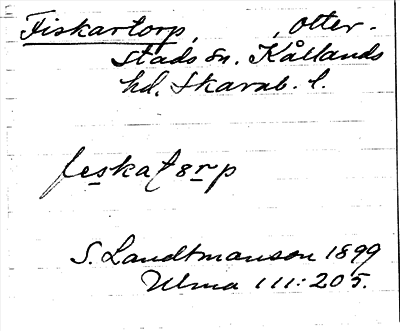 Fiskartorp, , Otter-
stads sn. Kållands
hd. Skarab. l.
feskatorp
S. Landtmanson 1899
Ulma 111:205.